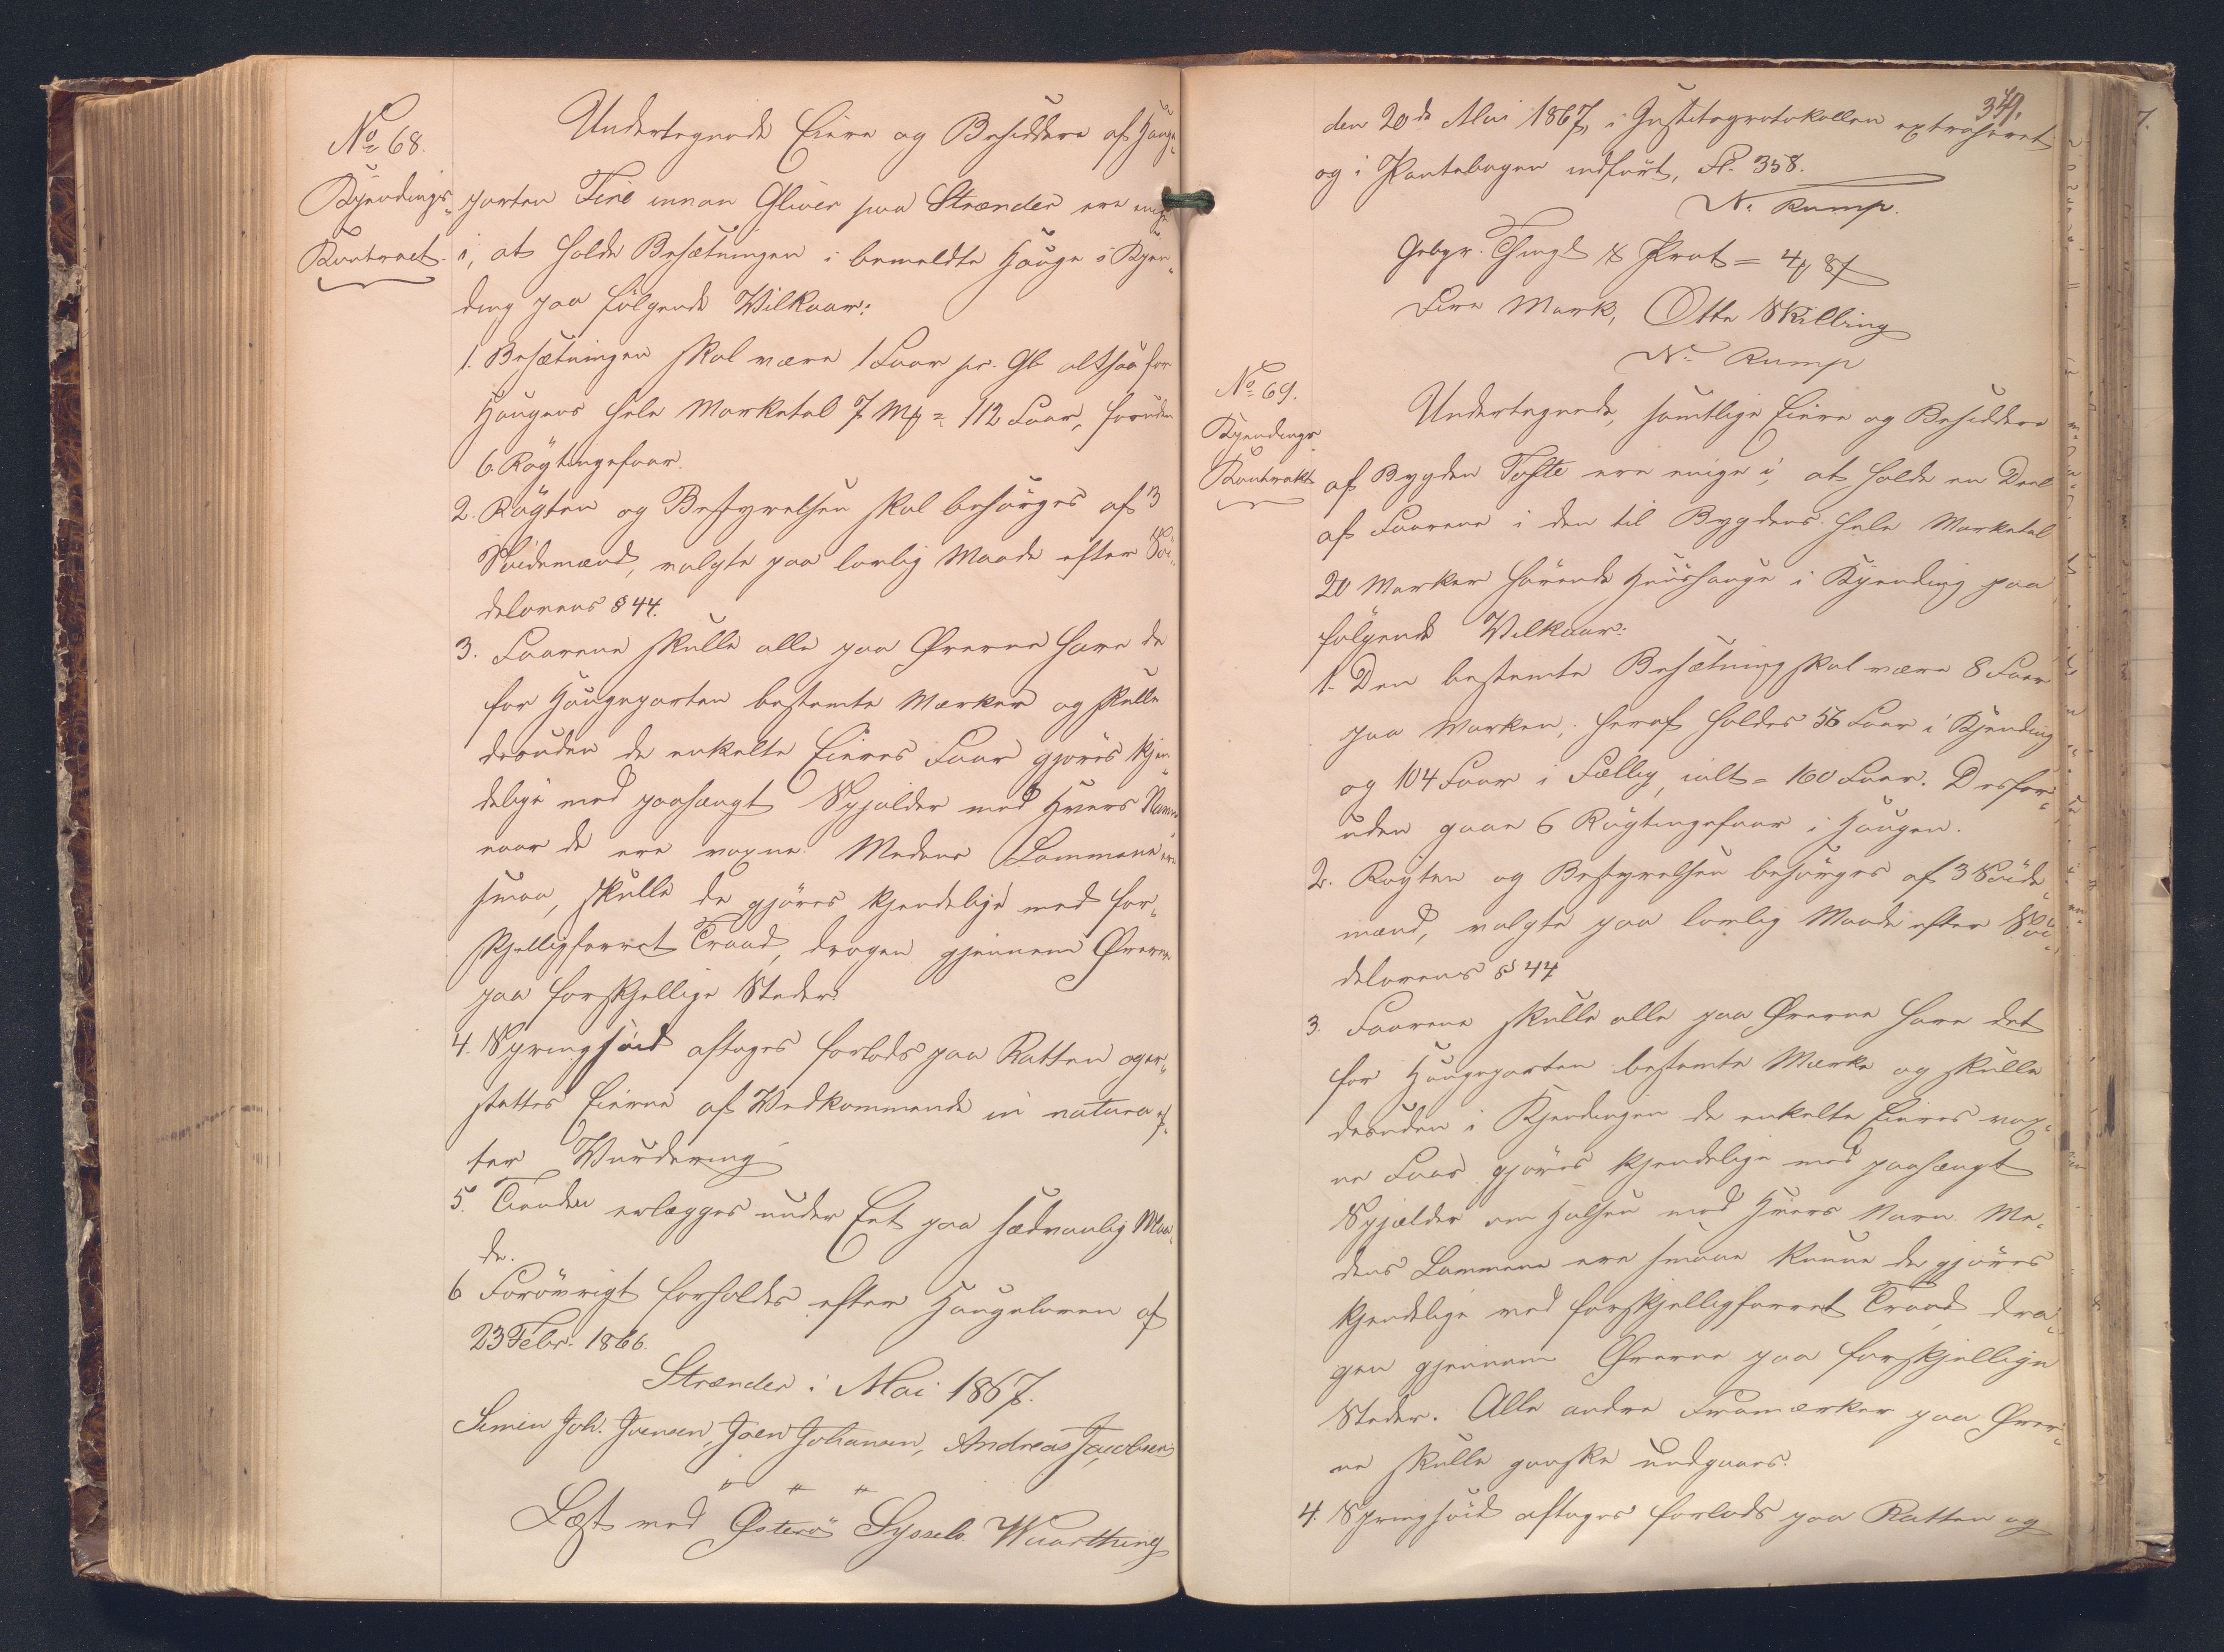 No 68.
Kjendings-
Kontract.
Undertegnede Eiere og Besiddere af Hauge-
parten Fire innan Gliver paa Strænder ere enige
i, at holde Besætningen i bemeldte Hauge i Kjen-
ding paa følgende Vilkaar:
1. Besætningen skal være 1 Faar pr. Gl. altsaa for
Haugens hele Marketal 7 Mk = 112 Faar, foruden
6 Røgtingsfaar.
2. Røgten og Bestyrelsen skal besørges af 3
Søidemænd, valgte paa lovlig Maade efter Søi-
delovens § 44.
3. Faarene skulle alle paa Ørerne have de
for Haugeparten bestemte Mærker og skulle
desuden de enkelte Eieres Faar gjøres kjen-
delige med paahængt Spjælder med Hvers Navn
naar de ere voxne. Medens Lammene ere
smaa, skulle de gjøres kjendelige med for-
skjelligfarvet Traad, dragen gjennem Ørerne
paa forskjellige Steder.
4. Springsøid aftages forlods paa Retten og er-
stattes Eierne af Vedkommende in natura ef-
ter Vurdering
5. Tienden erlægges under Eet paa sædvanlig Maa-
de.
6 Forøvrigt forholdes efter Haugeloven af
23 Febr. 1866.
Strænder i Mai 1867.
Simen Joh. Joensen, Joen Johansen, Andreas Jacobsen
" " "
Læst ved Østerø Syssels Vaarthing
349.
den 20de Mai 1867, i Justitsprotokollen extraheret
og i Pantebogen indført, Fl. 358.
N. Rump.
Gebyr. Thingl & Prot = 4 8
Fire Mark, Otte Skilling
N. Rump
No 69.
Kjendings
Kontrakt
Undertegnede, samtlige Eiere og Besiddere
af Bygden Tofte ere enige i, at holde en Deel
af Faarene i den til Bygdens hele Marketal
20 Marker hørende Huushauge i Kjending paa
følgende Vilkaar:
1. Den bestemte Besætning skal være 8 Faar
paa Marken; heraf holdes 56 Faar i Kjending
og 104 Faar i Fællig, ialt = 160 Faar. Desfor-
uden gaae 6 Røgtingsfaar i Haugen.
2. Røgten og Bestyrelsen besørges af 3 Søide-
mænd, valgte paa lovlig Maade efter Søi-
delovens § 44
3. Faarene skulle alle paa Ørerne have det
for Haugeparten bestemte Mærke og skulle
desuden i Kjendingen de enkelte Eieres vox-
ne Faar gjøres kjendelige med paahængt
Spjælder om Halsen med Hvers Navn. Me-
dens Lammene ere smaae kunne de gjøres
kjendelige ved forskjelligfarvet Traad dra-
gen gjennem Ørerne paa forskjellige
Steder. Alle andre Framærker paa Ører-
ne skulle ganske undgaaes.
4. Springsøid aftages forlods paa Retten og